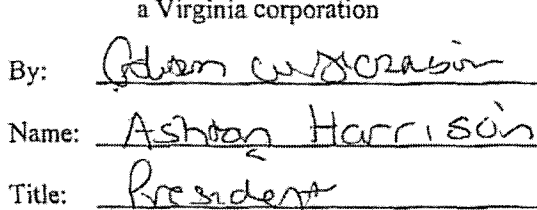 a Virginia corporation
By:
Name: Ashton Harrison
Title: President